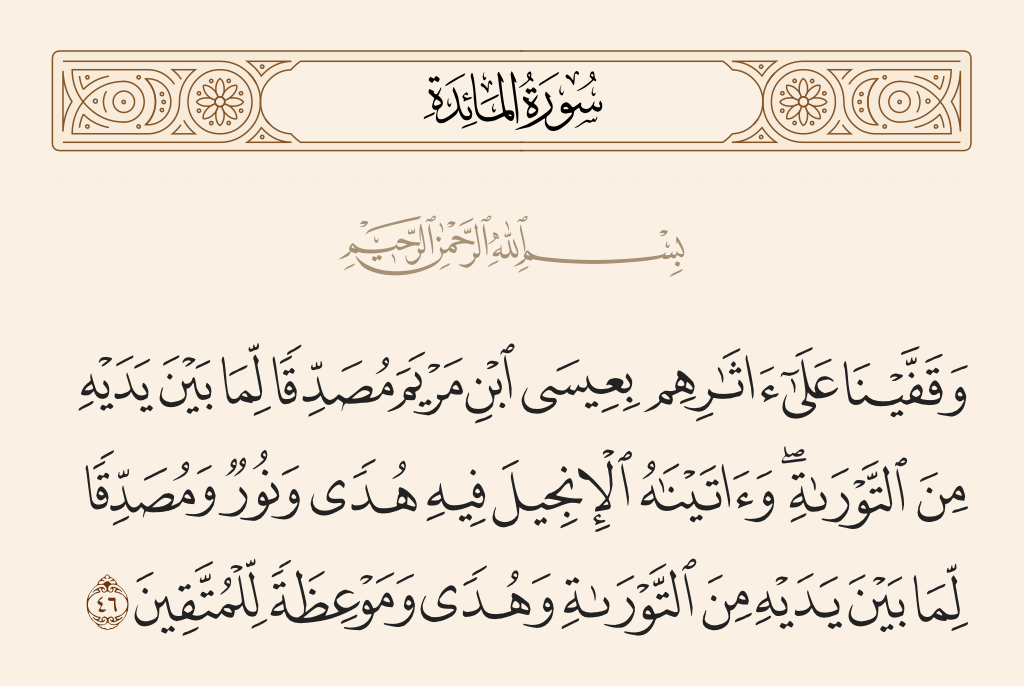 سُورَةُ المَائِدَةِ
بِسْمِ ٱللَّهِ ٱلرَّحْمَٰنِ ٱلرَّحِيمِ
وَقَفَّيْنَا عَلَىٰٓ ءَاثَٰرِهِم بِعِيسَى ٱبْنِ مَرْيَمَ مُصَدِّقًا لِّمَا بَيْنَ يَدَيْهِ
مِنَ ٱلتَّوْرَىٰةِ ۖ وَءَاتَيْنَٰهُ ٱلْإِنجِيلَ فِيهِ هُدًى وَنُورٌ وَمُصَدِّقًا
لِّمَا بَيْنَ يَدَيْهِ مِنَ ٱلتَّوْرَىٰةِ وَهُدًى وَمَوْعِظَةً لِّلْمُتَّقِينَ ٤٦